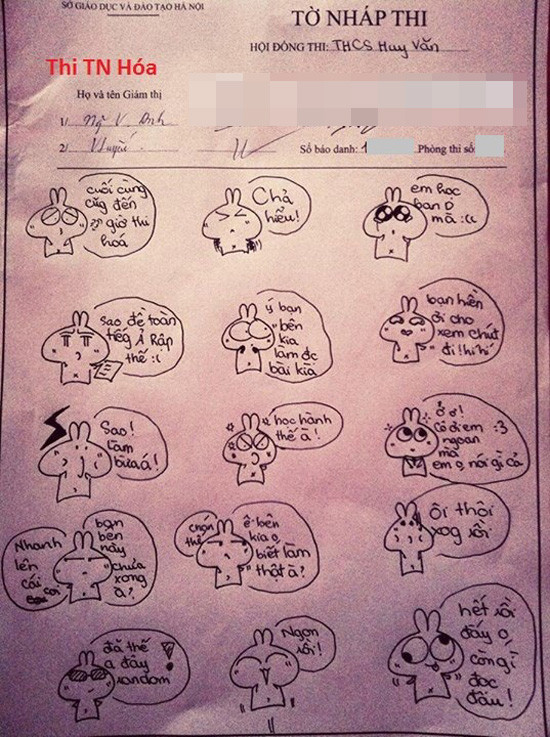 SỞ GIÁO DỤC VÀ ĐÀO TẠO HÀ NỘI
TỜ NHÁP THI
HỘI ĐỒNG THI: THCS Huy Văn
Thi TN Hóa
Họ và tên Giám thị
1/
2/
Số báo danh: 1
Phòng thi số:
cuối cùng
cũg đến
giờ thi
hoá
Chả
hiểu!
em học
ban D
mà :((
sao đề toàn
tiếg Ả Rập
thế :(
ý bạn
bên
kia
làm đc
bài kìa
bạn hiền
ơi cho
xem chút
đi! hi hi
Sao!
Làm
bừa á!
học hành
thế à!
ớ ơ!
Cô ơi em :3
ngoan
mà
em o nói gì cả
Nhanh
lên
cái
coi
bạn
bên
này
chưa
xong
à?
chán
thế
ê bên
kia o
biết làm
thật à?
ôi thôi
xog rồi
đã thế
a đây
random
!
Ngon
rồi!
hết rồi
đấy o
còn gì
đọc
đâu!